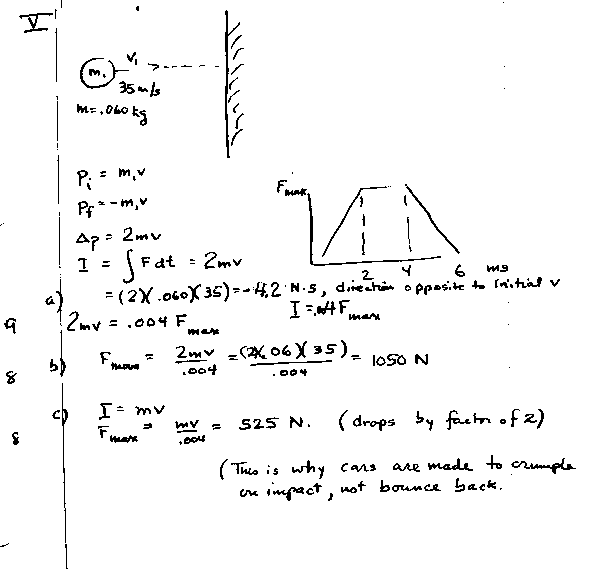 V
m₁ V₁
35 m/s
m = .060 kg
Pᵢ = m₁v
P_f = -m₁v
Δp = 2mv
I = ∫ F dt = 2mv
F max
2 4 6 ms
a) = (2)(.060)(35) = -4.2 N·s, direction opposite to initial v
I = .004 F max
9 2mv = .004 F max
8 b) F max = 2mv/.004 = (2)(.06)(35)/.004 = 1050 N
c) I = mv
8 F max = mv/.004 = 525 N. (drops by factor of 2)
(This is why cars are made to crumple
on impact, not bounce back.